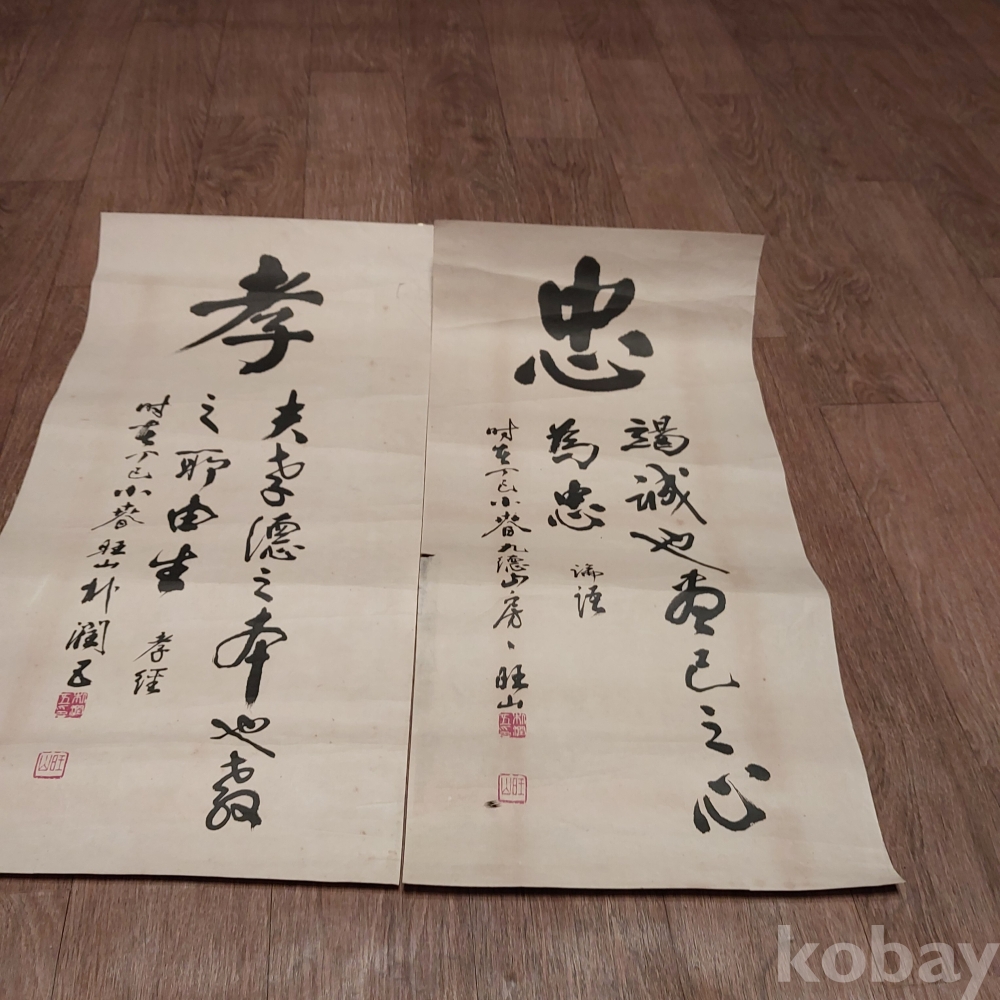 忠
竭誠也盡己之心
為忠 論語
时在丁巳小春九德山房、旺山
旺山
孝
夫孝德之本也教
之所由生 孝經
时在丁巳小春旺山朴潤五
旺山
kobay